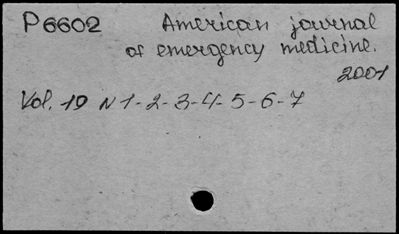 P6602 American journal
of emergency medicine.
2001
Vol. 19 N 1-2-3-4-5-6-7